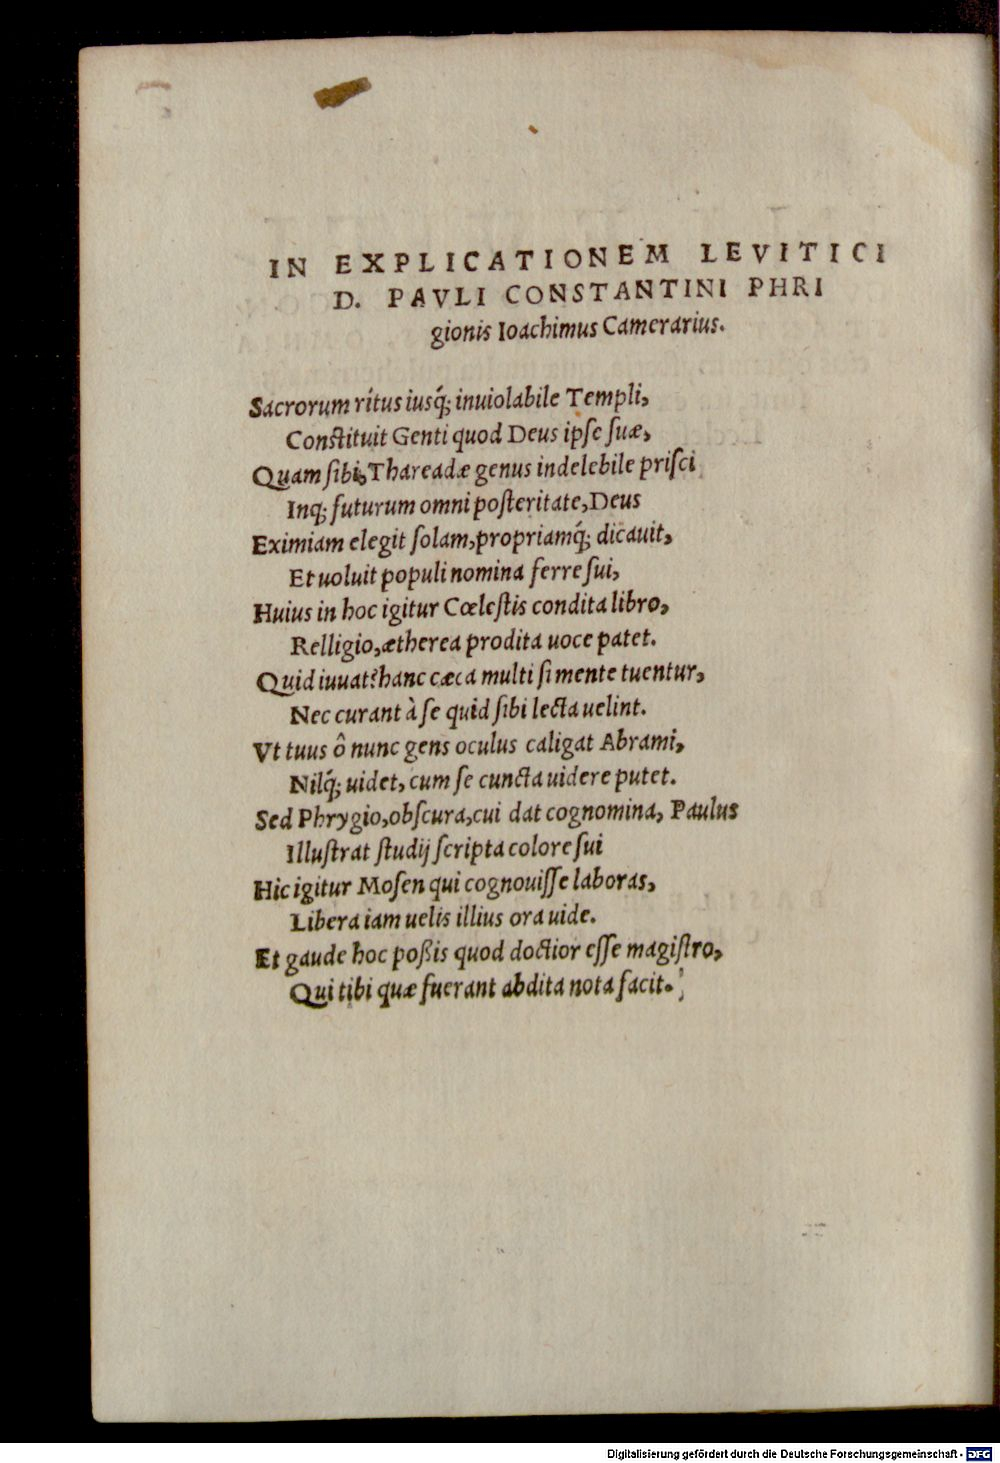 IN EXPLICATIONEM LEVITICI
D. PAVLI CONSTANTINI PHRI
gionis Ioachimus Camerarius.
Sacrorum rítus iusq́; inuiolabile Templi,
Constituit Genti quod Deus ipſe ſuæ,
Quam ſibi, Thareadæ genus indelebile priſci
Inq; futurum omni poſteritate, Deus
Eximiam elegit ſolam, propriamq́; dicauit,
Et uoluit populi nomina ferre ſui,
Huius in hoc igitur Cœleſtis condita libro,
Relligio, ætherea prodita uoce patet.
Quid iuuat? hanc cæca multi ſi mente tuentur,
Nec curant à ſe quid ſibi lecta uelint.
Vt tuus ô nunc gens oculus caligat Abrami,
Nilq́; uidet, cum ſe cuncta uidere putet.
Sed Phrygio, obſcura, cui dat cognomina, Paulus
Illuſtrat ſtudij ſcripta colore ſui
Hic igitur Moſen qui cognouiſſe laboras,
Libera iam uelis illius ora uide.
Et gaude hoc poßis quod doctior eſſe magiſtro,
Qui tibi quæ fuerant abdita nota facit.
Digitalisierung gefördert durch die Deutsche Forschungsgemeinschaft - DFG